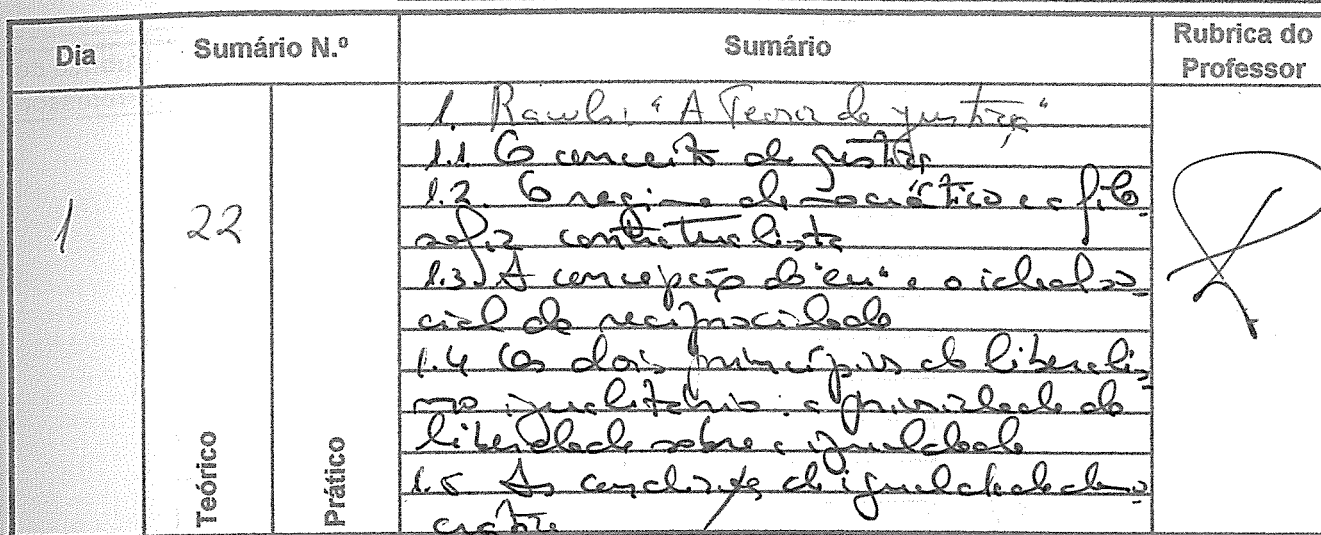 Dia Sumário N.º Sumário Rubrica do Professor
1 22
Teórico Prático
1. Rawls: "A Teoria da justiça"
1.1 O conceito de justiça
1.2. O regime democrático e a filo
sofia contratualista
1.3. A concepção do "eu" e o ideal so
cial de reciprocidade
1.4 Os dois princípios do liberalis
mo igualitário: a prioridade da
liberdade sobre a igualdade
1.5 As condições de igualdade demo
crática